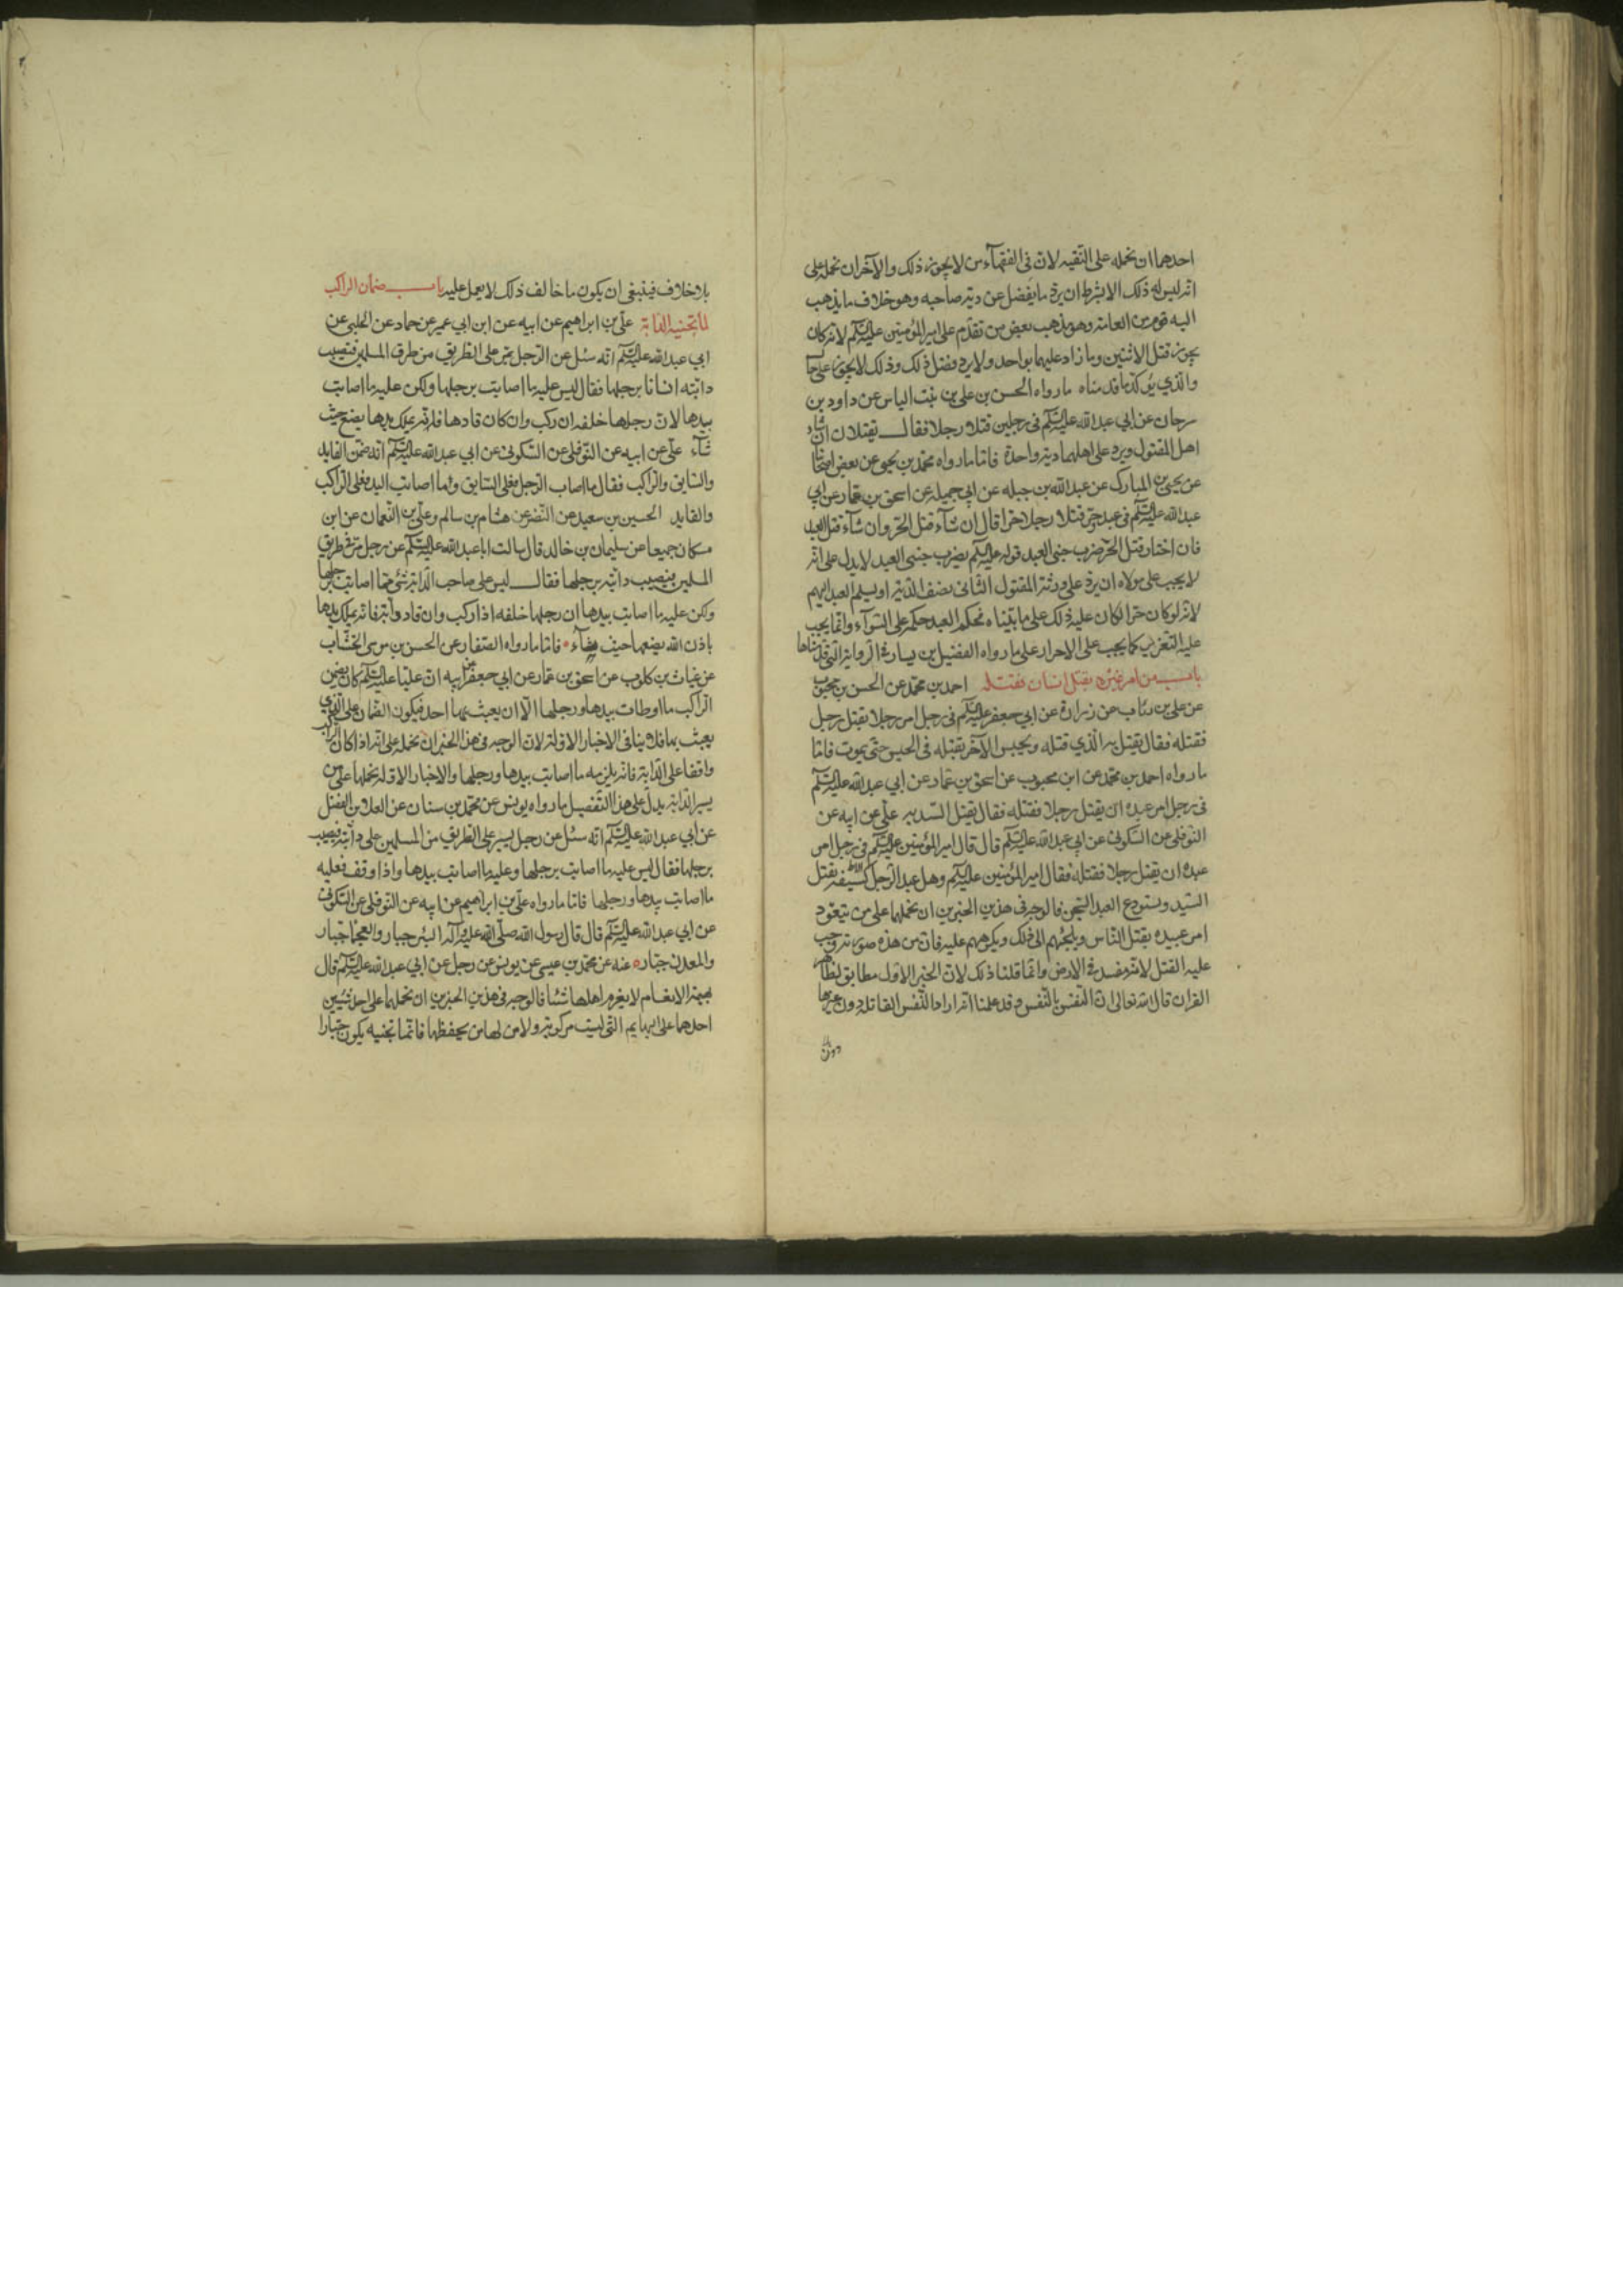 احدهما ان نحمله على التقيه لان في الفقهآء من لا يجوز ذلك والآخر ان نحمله على
انه ليس له ذلك الا بشرط ان يرد ما يفضل عن دية صاحبه وهو خلاف ما يذهب
اليه قوم من العامة وهو مذهب بعض من تقدم على امير المؤمنين عليه السلم لانه كان
يجوز قتل الاثنين وما زاد عليهما بواحد ولا يرد فضل ذلك وذلك لا يجوز على حال
والذي يؤكد ما قدمناه ما رواه الحسن بن علي بن بنت الياس عن داود بن
سرحان عن ابي عبد الله عليه السلم في رجلين قتلا رجلا فقال يقتلان ان شاء
اهل المقتول ويرد على اهلهما دية واحدة فاما ما رواه محمد بن يحيى عن بعض اصحابنا
عن يحيى بن المبارك عن عبد الله بن جبله عن ابي جميله عن اسحق بن عمار عن ابي
عبد الله عليه السلم في عبد وحر قتلا رجلا حرا قال ان شآء قتل الحر وان شآء قتل العبد
فان اختار قتل الحر ضرب جنبي العبد قوله عليه السلم يضرب جنبي العبد لا يدل على انه
لا يجب على مولاه ان يرد على ورثة المقتول الثاني نصف الدية او يسلم العبد اليهم
لانه لو كان حرا لكان عليه ذلك على ما بيناه فحكم العبد حكمه على السوآء وانما يجب
عليه التعزير كما يجب على الاحرار على ما رواه الفضيل بن يسار في الرواية التي قدمناها
باب من امر غيره بقتل انسان فقتله احمد بن محمد عن الحسن بن محبوب
عن علي بن رئاب عن زرارة عن ابي جعفر عليه السلم في رجل امر رجلا بقتل رجل
فقتله فقال يقتل به الذي قتله ويحبس الآخر بقتله في الحبس حتى يموت فاما
ما رواه احمد بن محمد عن ابن محبوب عن اسحق بن عمار عن ابي عبد الله عليه السلم
في رجل امر عبده ان يقتل رجلا فقتله فقال يقتل السيد به علي عن ابيه عن
النوفلي عن السكوني عن ابي عبد الله عليه السلم قال قال امير المؤمنين عليه السلم في رجل امر
عبده ان يقتل رجلا فقتله فقال امير المؤمنين عليه السلم وهل عبد الرجل الا كسيفه يقتل
السيد ويستودع العبد السجن فالوجه في هذين الخبرين ان نحملهما على من يتعود
امر عبيده بقتل الناس ويلجئهم الى ذلك ويكرههم عليه فان من هذه صورته وجب
عليه القتل لانه مفسد في الارض وانما قلنا ذلك لان الخبر الاول مطابق لظاهر
القران قال الله تعالى ان النفس بالنفس وقد علمنا انه اراد النفس القاتله دون غيرها
بلا خلاف فينبغي ان يكون ما خالف ذلك لا يعمل عليه باب ضمان الراكب
لما تجنيه الدابة علي بن ابراهيم عن ابيه عن ابن ابي عمير عن حماد عن الحلبي عن
ابي عبد الله عليه السلم انه سئل عن الرجل يمر على الطريق من طرق المسلمين فتصيب
دابته انسانا برجلها فقال ليس عليه ما اصابت برجلها ولكن عليه ما اصابت
بيدها لان رجلها خلفه ان ركب وان كان قادها فانه يملك يدها يضع حيث
شآء علي عن ابيه عن النوفلي عن السكوني عن ابي عبد الله عليه السلم انه ضمن القايد
والسايق والراكب فقال ما اصاب الرجل فعلى السايق وما اصابت اليد فعلى الراكب
والقايد الحسين بن سعيد عن النضر عن هشام بن سالم وعلي بن النعمان عن ابن
مسكان جميعا عن سليمان بن خالد قال سالت ابا عبد الله عليه السلم عن رجل مر في طريق
المسلمين فتصيب دابته برجلها فقال ليس على صاحب الدابة شئ مما اصابت برجلها
ولكن عليه ما اصابت بيدها لان رجلها خلفه اذا ركب وان قاد دابة فانه يملك يدها
باذن الله يضعها حيث يشآء فاما ما رواه الصفار عن الحسن بن موسى الخشاب
عن غياث بن كلوب عن اسحق بن عمار عن ابي جعفر عن ابيه ان عليا عليه السلم كان يضمن
الراكب ما اوطات بيدها ورجلها الا ان يعبث بها احد فيكون الضمان على الذي
يعبث بها فلا ينافي الاخبار الاوله لان الوجه في هذا الخبر ان نحمله على انه اذا كان الراكب
واقفا على الدابة فانه يلزمه ما اصابت بيدها ورجلها والاخبار الاوله نحملها على من
يسير الدابة يدل على هذا التفصيل ما رواه يونس عن محمد بن سنان عن العلا بن الفضيل
عن ابي عبد الله عليه السلم انه سئل عن رجل يسير على الطريق من المسلمين على دابة فتصيب
برجلها فقال ليس عليه ما اصابت برجلها وعليه ما اصابت بيدها واذا وقف فعليه
ما اصابت بيدها ورجلها فاما ما رواه علي بن ابراهيم عن ابيه عن النوفلي عن السكوني
عن ابي عبد الله عليه السلم قال قال رسول الله صلى الله عليه وآله البئر جبار والعجمآ جبار
والمعدن جبار عنه عن محمد بن عيسى عن يونس عن رجل عن ابي عبد الله عليه السلم قال
بهيمة الانعام لا يغرم اهلها شئا فالوجه في هذين الخبرين ان نحملهما على احد شيئين
احدهما على البهايم التي ليست مركوبة ولا من لها من يحفظها فانما تجنيه يكون جبارا